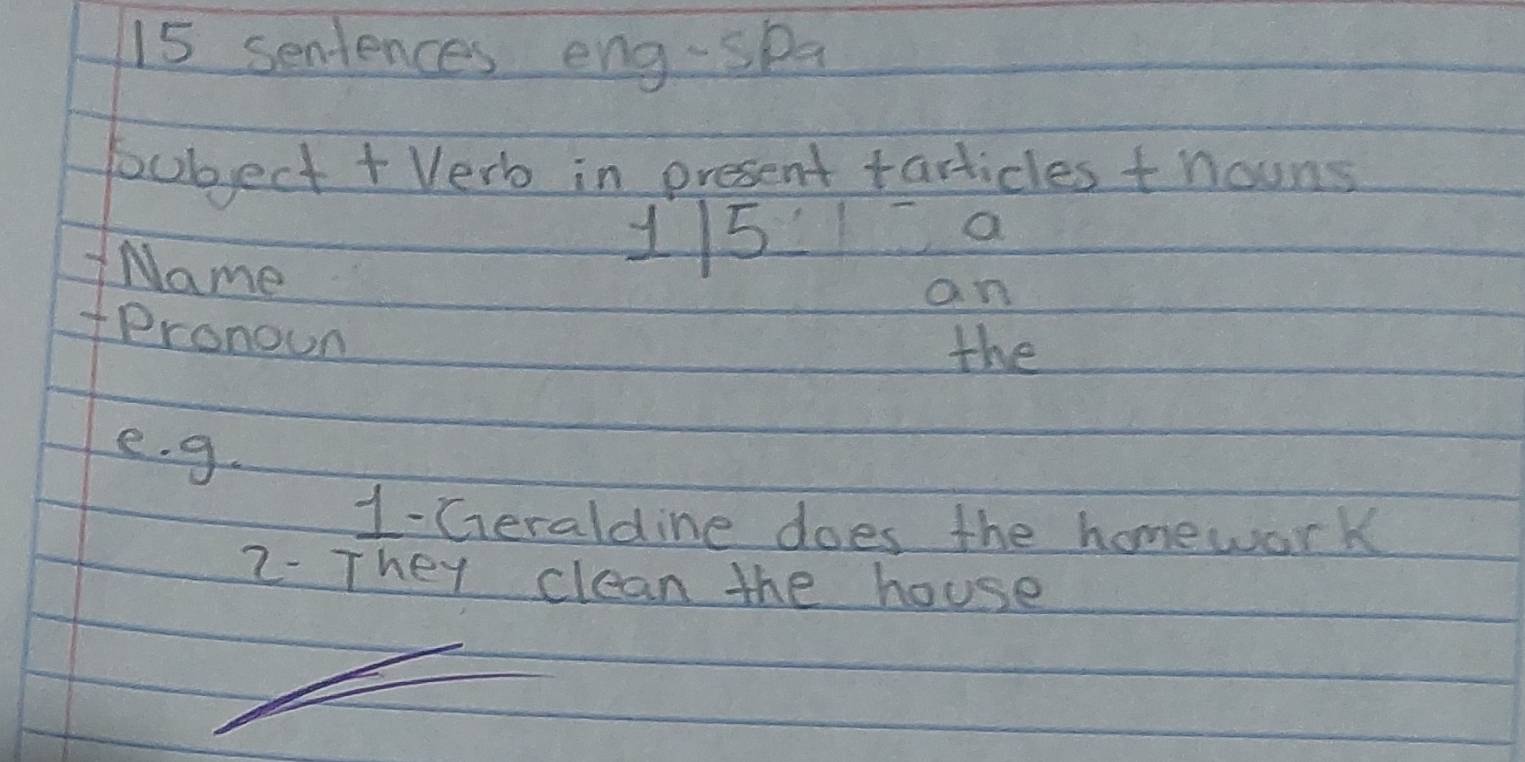 15 sentences eng-spa
Subject + Verb in present + articles + nouns
1 | 5 a
+ Name
an
+ Pronoun
the
e.g.
1- Geraldine does the homework
2- They clean the house